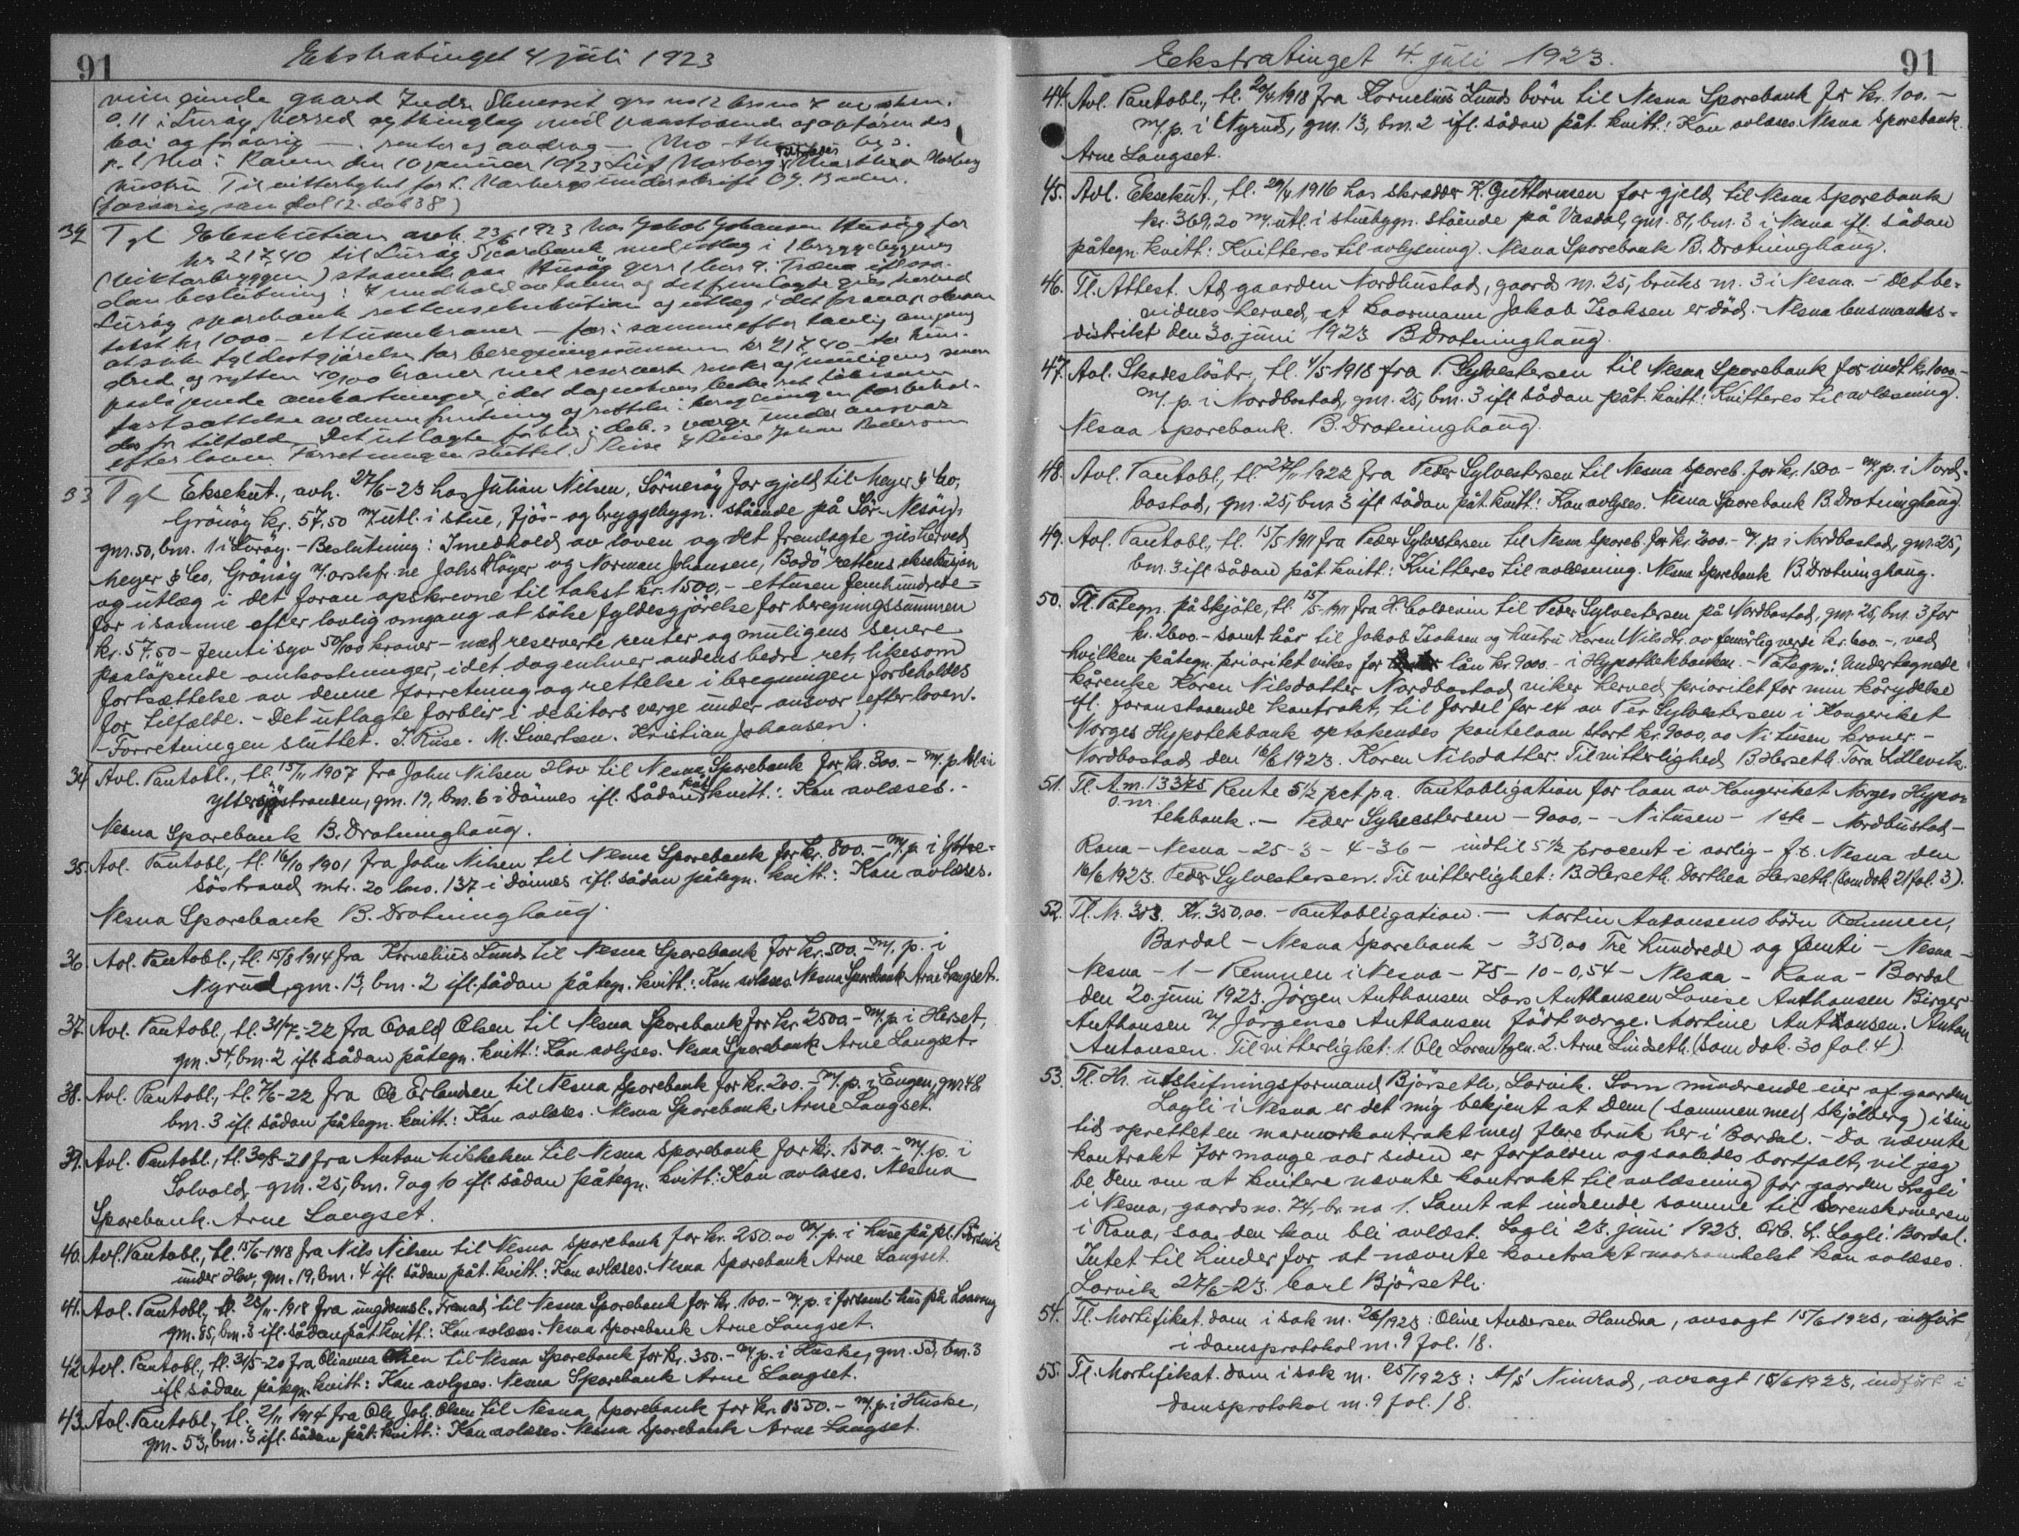 91
Ekstratinget 4 juli 1923
min eiende gaard Indre gnr no 12 brno 7 av skm.
0,11 i Lurøy herred og thinglag med paastaaende og opførendes
hus og forøvrig renter og avdrag
Ranen den 10 januar 1923 Leif Marberg
hustru Til vitterlighet for L. Marbergs underskrift O J.
(forøvrig som fol 12. dok 38)
32 Tgl Eksekution avh. 23/5 1923 hos Jakob Johansen Husøy for
kr 217,40 til Lurøy Sparebank med utlæg i 1 bryggebygning
(Viktorbryggen) staaende paa Husøy gnr 1 bnr 9. Træna ifl saa-
dan beslutning: I medhold av loven og det fremlagte gies herved
Lurøy sparebank rettens eksekution og utlæg i det foran opskrevne
takst kr 1000 - ettusenkroner - for i samme efter lovlig omgang
at søke fyldestgjørelse for beregningssummen kr 217,40 - to hun-
dred og sytten 40/100 kroner med reserverte renter og muligens senere
paaløpende omkostninger, i det dog enhver bedre ret likesom
fortsættelse av denne forretning og rettelse i beregningen forbehol-
des for tilfælde. Det utlagte forblir i deb.s værge under ansvar
efter loven. Forretningen sluttet. J Ruse Johan Pedersen
33 Tgl Eksekut., avh. 27/6-23 hos Julian Nilsen, Sörnesöy for gjeld til Meyer & Co,
Grönöy kr. 57,50 m/utl. i stue, fjös- og bryggebygn. stående på Sör-Nesöy,
gnr. 50, bnr. 1 i Luröy. - Beslutning: I medhold av loven og det fremlagte gies herved
Meyer & Co, Grönöy v/ orskfr.ne Johs Höyer og Norman Johansen, Bodö rettens eksekusjon
og utlæg i det foran opskrevne til takst kr. 1500,- ettusen femhundrede-
for i samme efter lovlig omgang at söke fyldesgjörelse for beregningssummen
kr. 57,50 - femti syv 50/100 kroner - med reserverte renter og muligens senere
paalöpende omkostninger, idet dog enhver andens bedre ret, likesom
fortsættelse av denne forretning og rettelse i beregningen forbeholdes
for tilfælde. - Det utlagte forblir i debitors verge under ansvar efter loven.
- Forretningen sluttet. J. Ruse. M. Sivertsen. Kristian Johansen.
34 Avl. Pantobl., tl. 15/11 1907 fra John Nilsen Hov til Nesna Sparebank for kr. 300. - m/p.
yttersöstranden, gnr. 19, bnr. 6 i Dönnes ifl. sådan påt kvitt.: Kan avlæses. -
Nesna Sparebank B. Drotninghaug.
35. Avl. Pantobl., tl. 16/10 1901 fra John Nilsen til Nesna Sparebank for kr. 800. - m/p. i Yttre-
söstrand mtr. 20 lno. 137 i Dönnes ifl. sådan påtegn. kvitt.: Kan avlæses.
Nesna Sparebank B. Drotninghaug.
36. Avl. Pantobl., tl. 15/8 1914 fra Kornelius Lund til Nesna Sparebank for kr. 500. - m/p. i
Nyrud, gnr. 13, bnr. 2 ifl. sådan påtegn. kvitt.: Kan avlæses. Nesna Sparebank Arne Langset.
37. Avl. Pantobl., tl. 31/7-22 fra Evald Olsen til Nesna Sparebank for kr. 2500 - m/p. i Herset,
gnr. 54, bnr. 2 ifl. sådan påtegn. kvitt.: Kan avlyses. Nesna Sparebank Arne Langset.
38. Avl. Pantobl., tl. 7/6-22 fra Ole Erlandsen til Nesna Sparebank for kr. 200. - m/p. i Engen, gnr 48
bnr. 3 ifl. sådan påtegn. kvitt.: Kan avlæses. Nesna Sparebank. Arne Langset.
39. Avl. Pantobl., tl. 30/5-21 fra Anton Mikkelsen til Nesna Sparebank for kr. 1500. - m/p. i
Solvold, gnr. 25, bnr. 9 og 10 ifl. sådan påtegn. kvitt.: Kan avlæses. Nesna
Sparebank. Arne Langset.
40. Avl. Pantobl., tl. 15/6-1918 fra Nils Nilsen til Nesna Sparebank for kr. 250.00 m/p. i huse på pl.
under Hov, gnr. 19, bnr. 4 ifl. sådan påt. kvitt.: Kan avlæses. Nesna Sparebank Arne Langset.
41. Avl. Pantobl., tl. 25/11-1918 fra ungdomsl. Fremad til Nesna Sparebank for kr. 100. - m/p. i forsaml. hus på
gnr. 85, bnr. 3 ifl. sådan påt kvitt.: Kan avlæses. Nesna Sparebank Arne Langset.
42. Avl. Pantobl., tl. 31/5-20 fra Olianna Olsen til Nesna Sparebank for kr. 350. - m/p. i Huske, gnr. 53, bnr. 3
ifl. sådan påtegn. kvitt.: Kan avlyses. Nesna Sparebank Arne Langset.
43. Avl. Pantobl., tl. 2/11 1914 fra Ole Joh. Olsen til Nesna Sparebank for kr. 1550. - m/p. i Huske,
gnr. 53, bnr. 3 ifl. sådan påt. kvitt.: Kan avlæses. Nesna Sparebank Arne Langset.
Ekstratinget 4. juli 1923.
91
44. Avl. Pantobl., tl. 20/4 1918 fra Kornelius Lunds børn til Nesna Sparebank for kr. 100. -
m/p. i Nyrud, gnr. 13, bnr. 2 ifl. sådan påt. kvitt.: Kan avlæses. Nesna Sparebank.
Arne Langset.
45. Avl. Eksekut., tl. 29/4 1916 hos skredder K. Guttormsen for gjeld til Nesna Sparebank
kr. 369,20 m/ utl. i stuebygn. stående på Vasdal, gnr. 81, bnr. 3 i Nesna ifl. sådan
påtegn. kvitt.: Kvitteres til avlysning. Nesna Sparebank B. Drotninghaug.
46. Tl. Attest. Ad gaarden Nordbustad, gaards nr. 25, bruks nr. 3 i Nesna. - Det be-
vidnes herved, at kaarmann Jakob Isaksen er död. Nesna lensmanns-
distrikt den 30. juni 1923 B Drotninghaug.
47. Avl. Skadeslöstbr., tl. 1/5 1918 fra P. Sylvestersen til Nesna Sparebank for indt. kr. 1000. -
m/p. i Nordbostad, gnr. 25, bnr. 3 ifl sådan påt. kvitt.: Kvitteres til avlæsning.
Nesna Sparebank. B. Drotninghaug.
48. Avl. Pantobl., tl. 27/11 1922 fra Peder Sylvestersen til Nesna Spareb. for kr. 1500 - m/p. i Nord-
bostad, gnr. 25, bnr 3 ifl sådan påt. kvitt.: Kan avlyses. Nesna Sparebank B. Drotninghaug.
49. Avl. Pantobl., tl. 15/5 1911 fra Peder Sylvestersen til Nesna Spareb. for kr. 2000. - m/p i Nordbostad, gnr. 25,
bnr. 3 ifl sådan påt. kvitt.: Kvitteres til avlæsning. Nesna Sparebank B. Drotninghaug.
50. Tl. Påtegn. på skjöte, tl. 15/5-1911 fra H. Coldevin til Peder Sylvestersen på Nordbostad, gnr. 25, bnr. 3 for
kr. 2600. - samt kår til Jakob Isaksen og hustru Karen Nilsdtr. av femårlig verdi kr. 600. -, ved
hvilken påtegn. prioritet vikes for lån kr. 9000. - i Hypothekbanken. - Påtegn.: Undertegnede
kårenke Karen Nilsdatter Nordbostad viker herved prioritet for min kårydelse
ifl. foranstaaende kontrakt, til fordel for et av Per Sylvestersen i Kongeriket
Norges Hypotekbank optakendes pantelaan stort kr. 9000,00 Nitusen kroner. -
Nordbostad den 16/6 1923. Karen Nilsdatter. Til vitterlighed B. Herseth. Tora Lillevik.
51. Tl. Am. 13375 Rente 5 1/2 pct pa. Pantobligation for laan av Kongeriket Norges Hypo-
o.m.
tekbank. - Peder Sylvestersen - 9000. - Nitusen - 1ste - Nordbustad -
Rana - Nesna - 25 - 3 - 4-36 - indtil 5 1/2 procent i aarlig - f.t. Nesna den
16/6 1923. Peder Sylvestersen. Til vitterlighet: B. Herseth. Dorthea Herseth. (som dok 21 fol. 3).
52. Tl. Nr. 303. Kr. 350,00. - Pantobligation. - Martin Antonsens börn Remmen,
Bardal - Nesna Sparebank - 350,00 Tre hundrede og femti - Nesna -
Nesna - 1 - Remmen i Nesna - 75 - 10 - 0,54 - Nesna - Rana - Bardal
den 20. juni 1923. Jörgen Anthonsen Lars Anthonsen Lovise Anthonsen Birger
Anthonsen v/ Jörgense Anthonsen född verge. Martine Anthonsen. Anton
Antonsen. Til vitterlighet: 1. Ole Lorentzen. 2. Arne Lindseth. (som dok. 30 fol. 4).
53. Tl. Hr. utskifningsformand Björseth, Larvik. Som nuværende eier af gaarden
Lagli i Nesna er det mig bekjent at Dem (sammen med Skjölberg) i sin
tid oprettet en marmorkontrakt med flere bruk her i Bardal. - Da nævnte
kontrakt for mange aar siden er forfalden og saaledes bortfalt, vil jeg
be Dem om at kvitere nævnte kontrakt til avlæsning for gaarden Lagli
i Nesna, gaards no. 74, br. no 1. Samt at indsende samme til Sorenskriveren
i Rana, saa den kan bli avlæst. Lagli 23. juni 1923. Orb. L. Lagli. Bardal.
Intet til hinder for at nævnte kontrakt naarsomhelst kan avlæses.
Larvik 27/6-23. Carl Björseth.
54. Tl. Mortifikat. dom i sak nr. 26/1923: Oline Andersen Handnæ, avsagt 15/6 1923, indfört
i domsprotokol nr. 9 fol. 18.
55. Tl. Mortifikat. dom i sak nr. 25/1923: A/S Nimrod, avsagt 15/6 1923, indfört i
domsprotokol nr. 9 fol. 18.